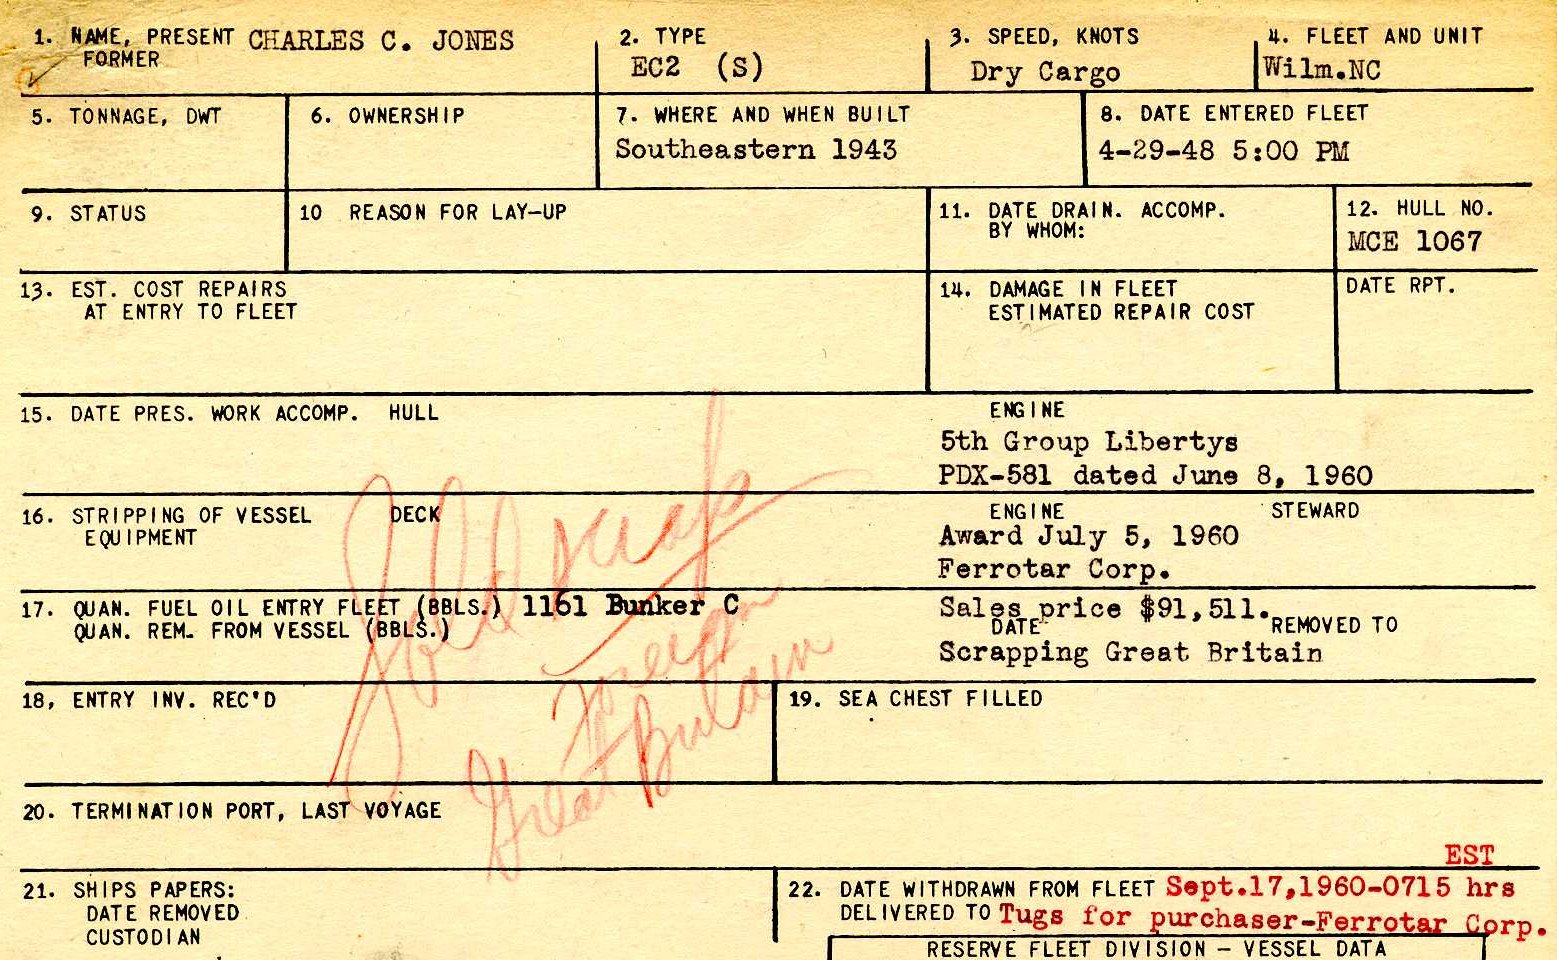 1. NAME, PRESENT CHARLES C. JONES
FORMER
2. TYPE
EC2 (S)
3. SPEED, KNOTS
Dry Cargo
4. FLEET AND UNIT
Wilm.NC
5. TONNAGE, DWT
6. OWNERSHIP
7. WHERE AND WHEN BUILT
Southeastern 1943
8. DATE ENTERED FLEET
4-29-48 5:00 PM
9. STATUS
10 REASON FOR LAY-UP
11. DATE DRAIN. ACCOMP.
BY WHOM:
12. HULL NO.
MCE 1067
13. EST. COST REPAIRS
AT ENTRY TO FLEET
14. DAMAGE IN FLEET
ESTIMATED REPAIR COST
DATE RPT.
15. DATE PRES. WORK ACCOMP. HULL
ENGINE
5th Group Libertys
PDX-581 dated June 8, 1960
16. STRIPPING OF VESSEL DECK
EQUIPMENT
ENGINE STEWARD
Award July 5, 1960
Ferrotar Corp.
17. QUAN. FUEL OIL ENTRY FLEET (BBLS.) 1161 Bunker C
QUAN. REM. FROM VESSEL (BBLS.)
Sales price $91,511.
DATE REMOVED TO
Scrapping Great Britain
Sold scrap
Foreign
Great Britain
18, ENTRY INV. REC'D
19. SEA CHEST FILLED
20. TERMINATION PORT, LAST VOYAGE
21. SHIPS PAPERS:
DATE REMOVED
CUSTODIAN
EST
22. DATE WITHDRAWN FROM FLEET Sept.17,1960-0715 hrs
DELIVERED TO Tugs for purchaser-Ferrotar Corp.
RESERVE FLEET DIVISION - VESSEL DATA